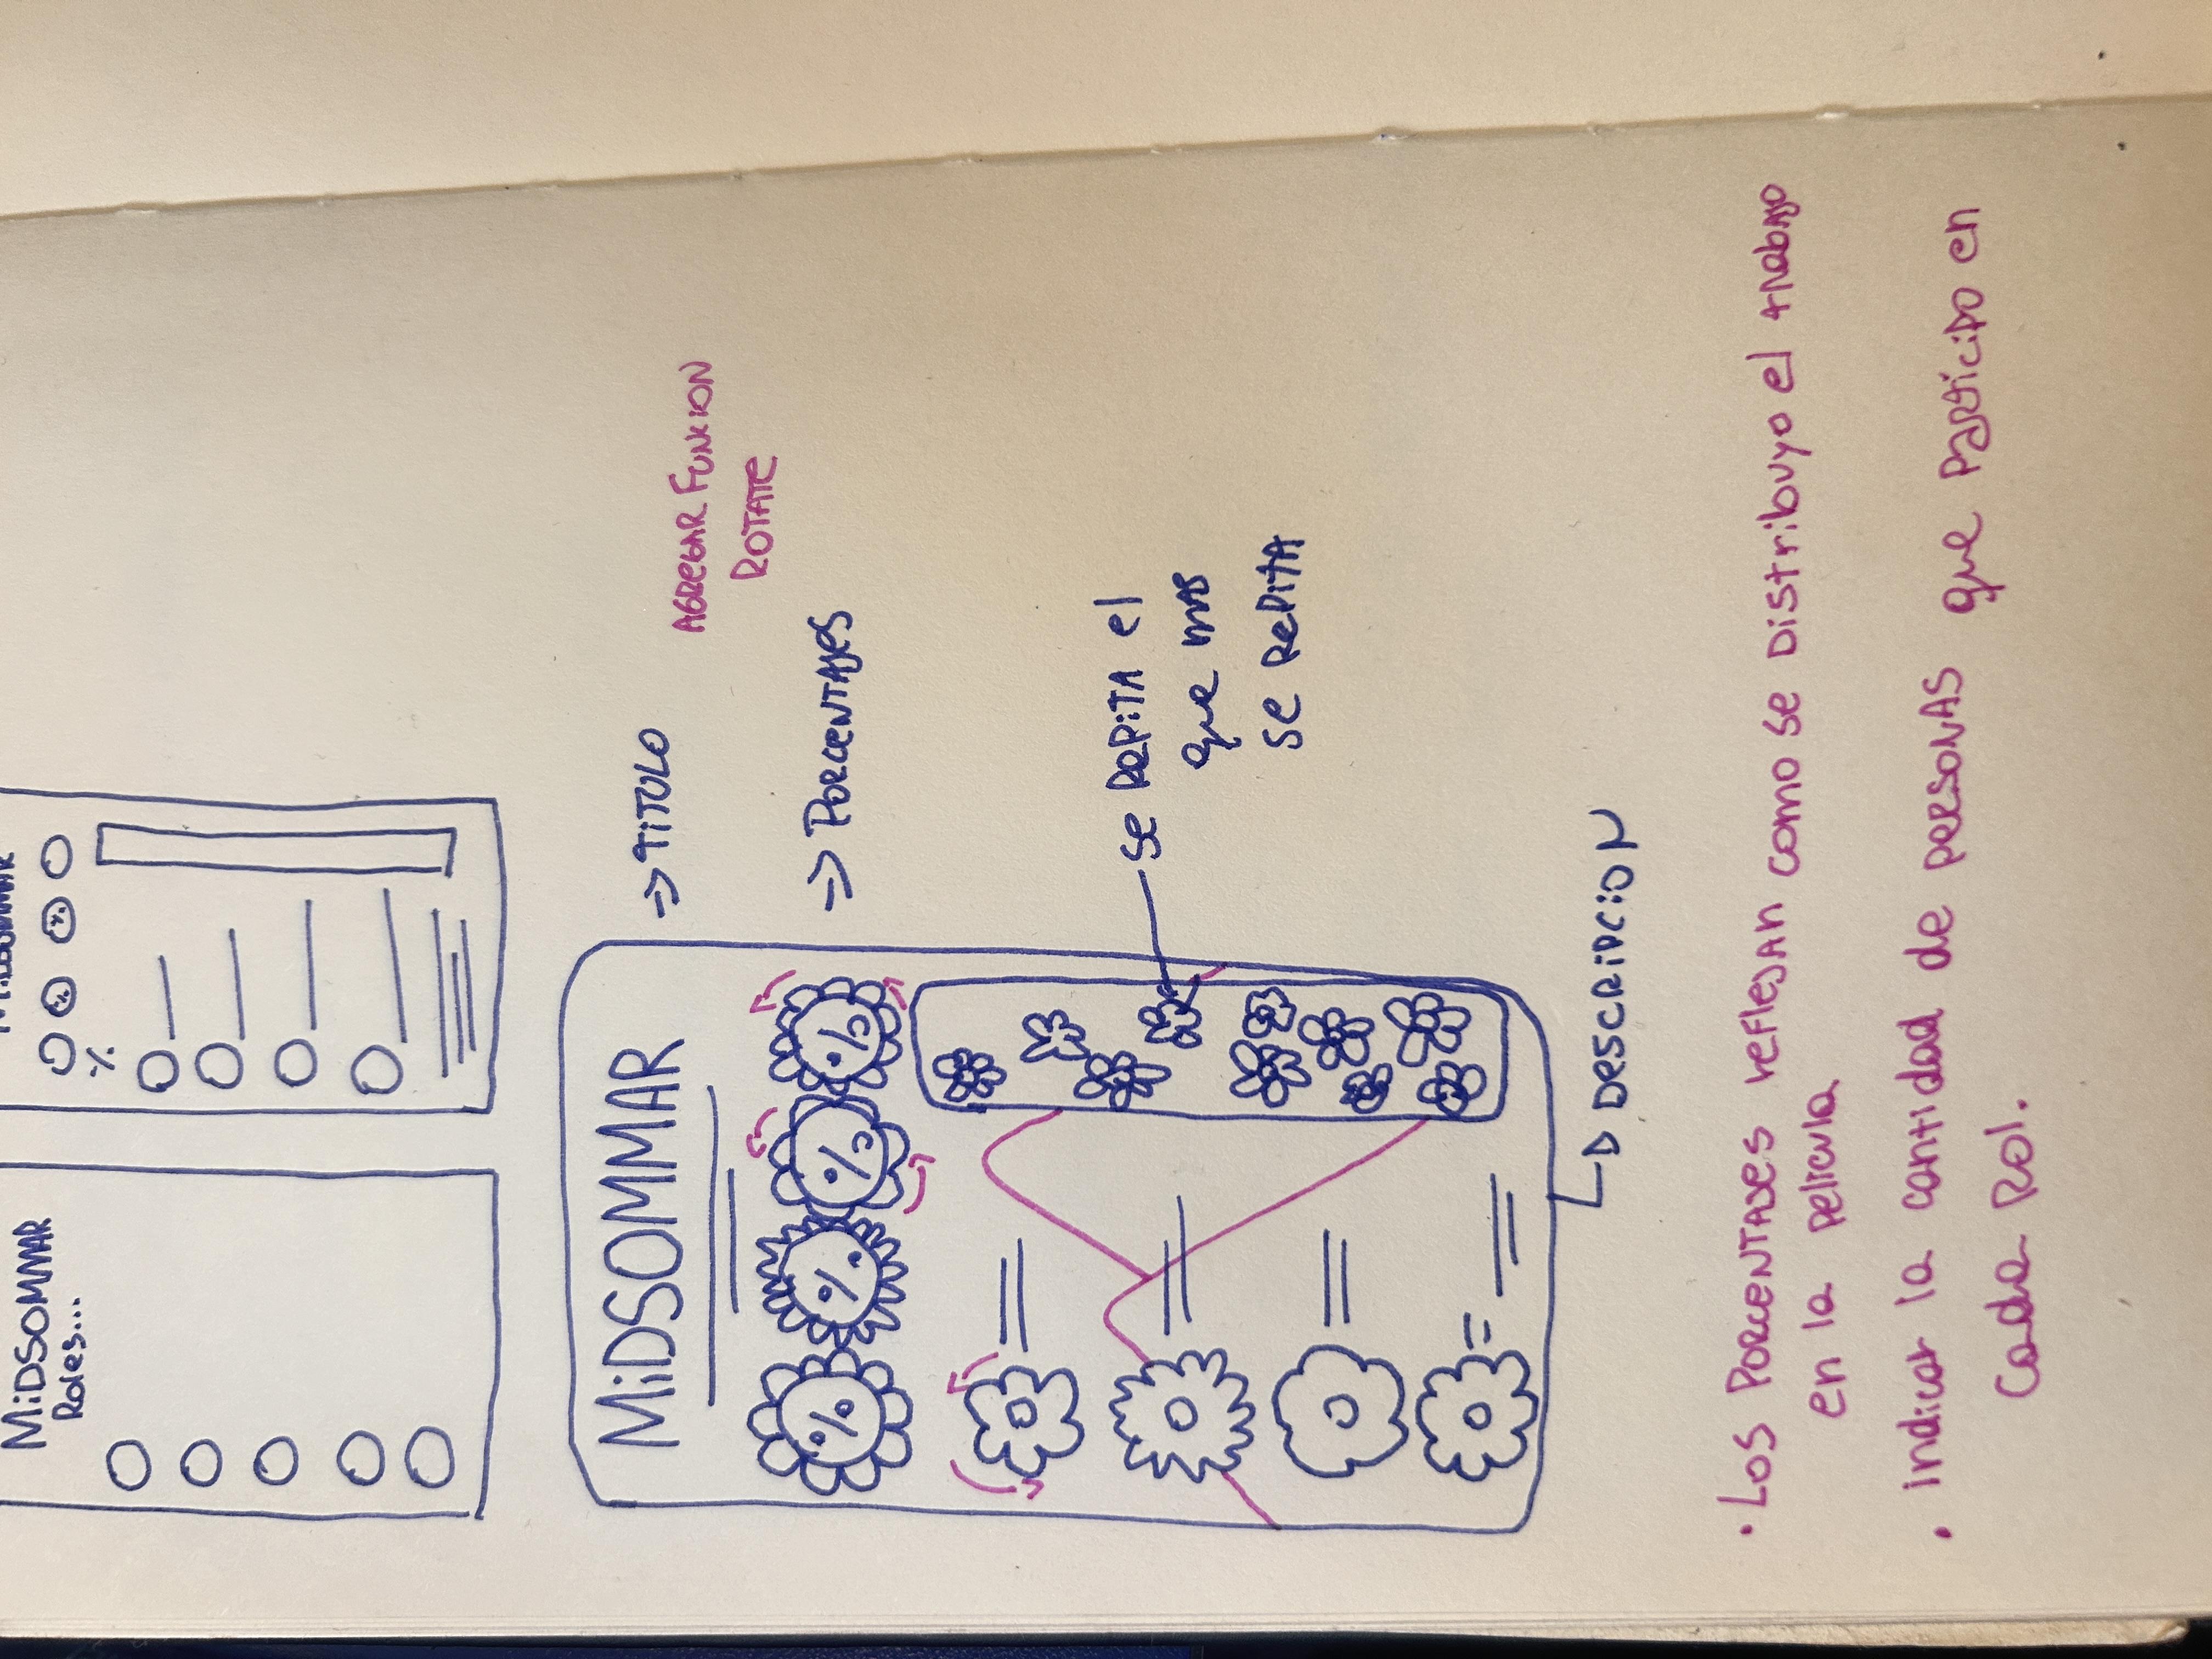 MiDSOMMAR
Roles...
MiDSOMMAR
% %
%
MiDSOMMAR
TiTULO
AGREGAR FUNCION
ROTATE
% % % %
PORCENTAJES
Se REPiTA el
que MAS
se RePiTA
DeSCRiPCiON
• Los PORCENTAJES reflejan como se Distribuyo el trabajo
en la pelicula
• indicar la cantidad de PERSONAS que Participo en
Cada Rol.